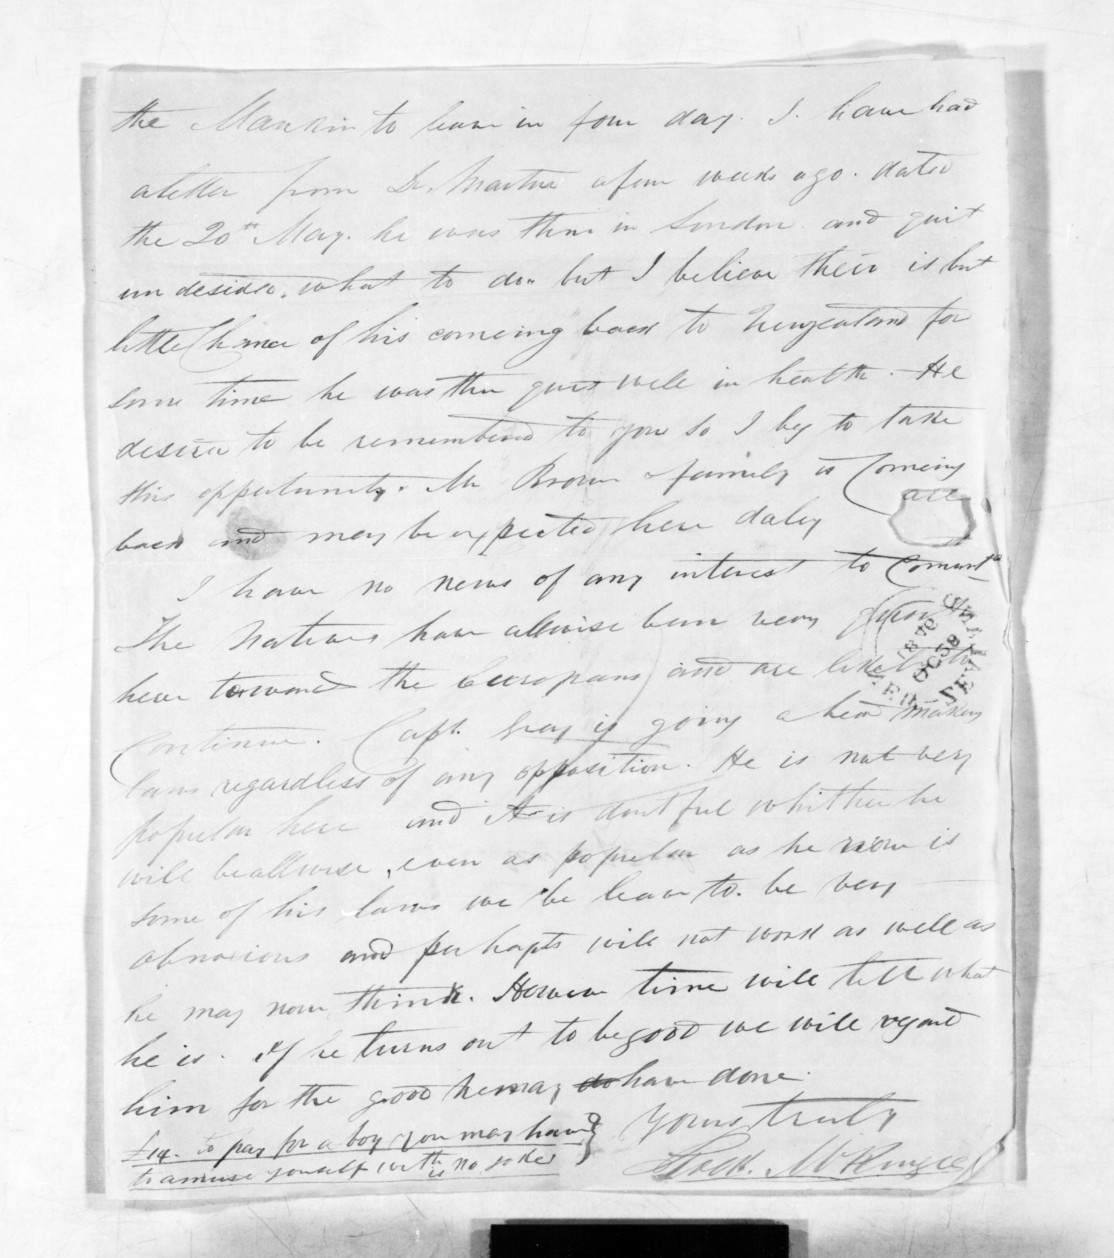 the Mankin to leave in four day. I have had
a letter from Dr. Martin a few weeks ago. dated
the 20th May. he was then in London. and quit
un desided. what to do. but I believe their is but
little Chance of his comeing back to Newzealand for
some time he was then quit well in health. He
desired to be remembered to you so I beg to take
this oppertunity. Mr Brown & family is Comeing
back and may be expected here daley all
I have no news of any interest to
The Natives have allwise been very
here toward the Europeans and are likely to
Continue. Capt. Gray is going a head making
laws regardless of any opposition. He is not very
populer here and it is doutful whither he
will be allwise, even as populer as he now is
some of his laws we be leave to. be very
abnoxious and perhapts will not work as well as
he may now think. However time will tell what
he is. if he turns out to be good we will regard
him for the good he may do have done.
Yours truly
£14. to pay for a boy you may have
to amuse yourself with is no joke